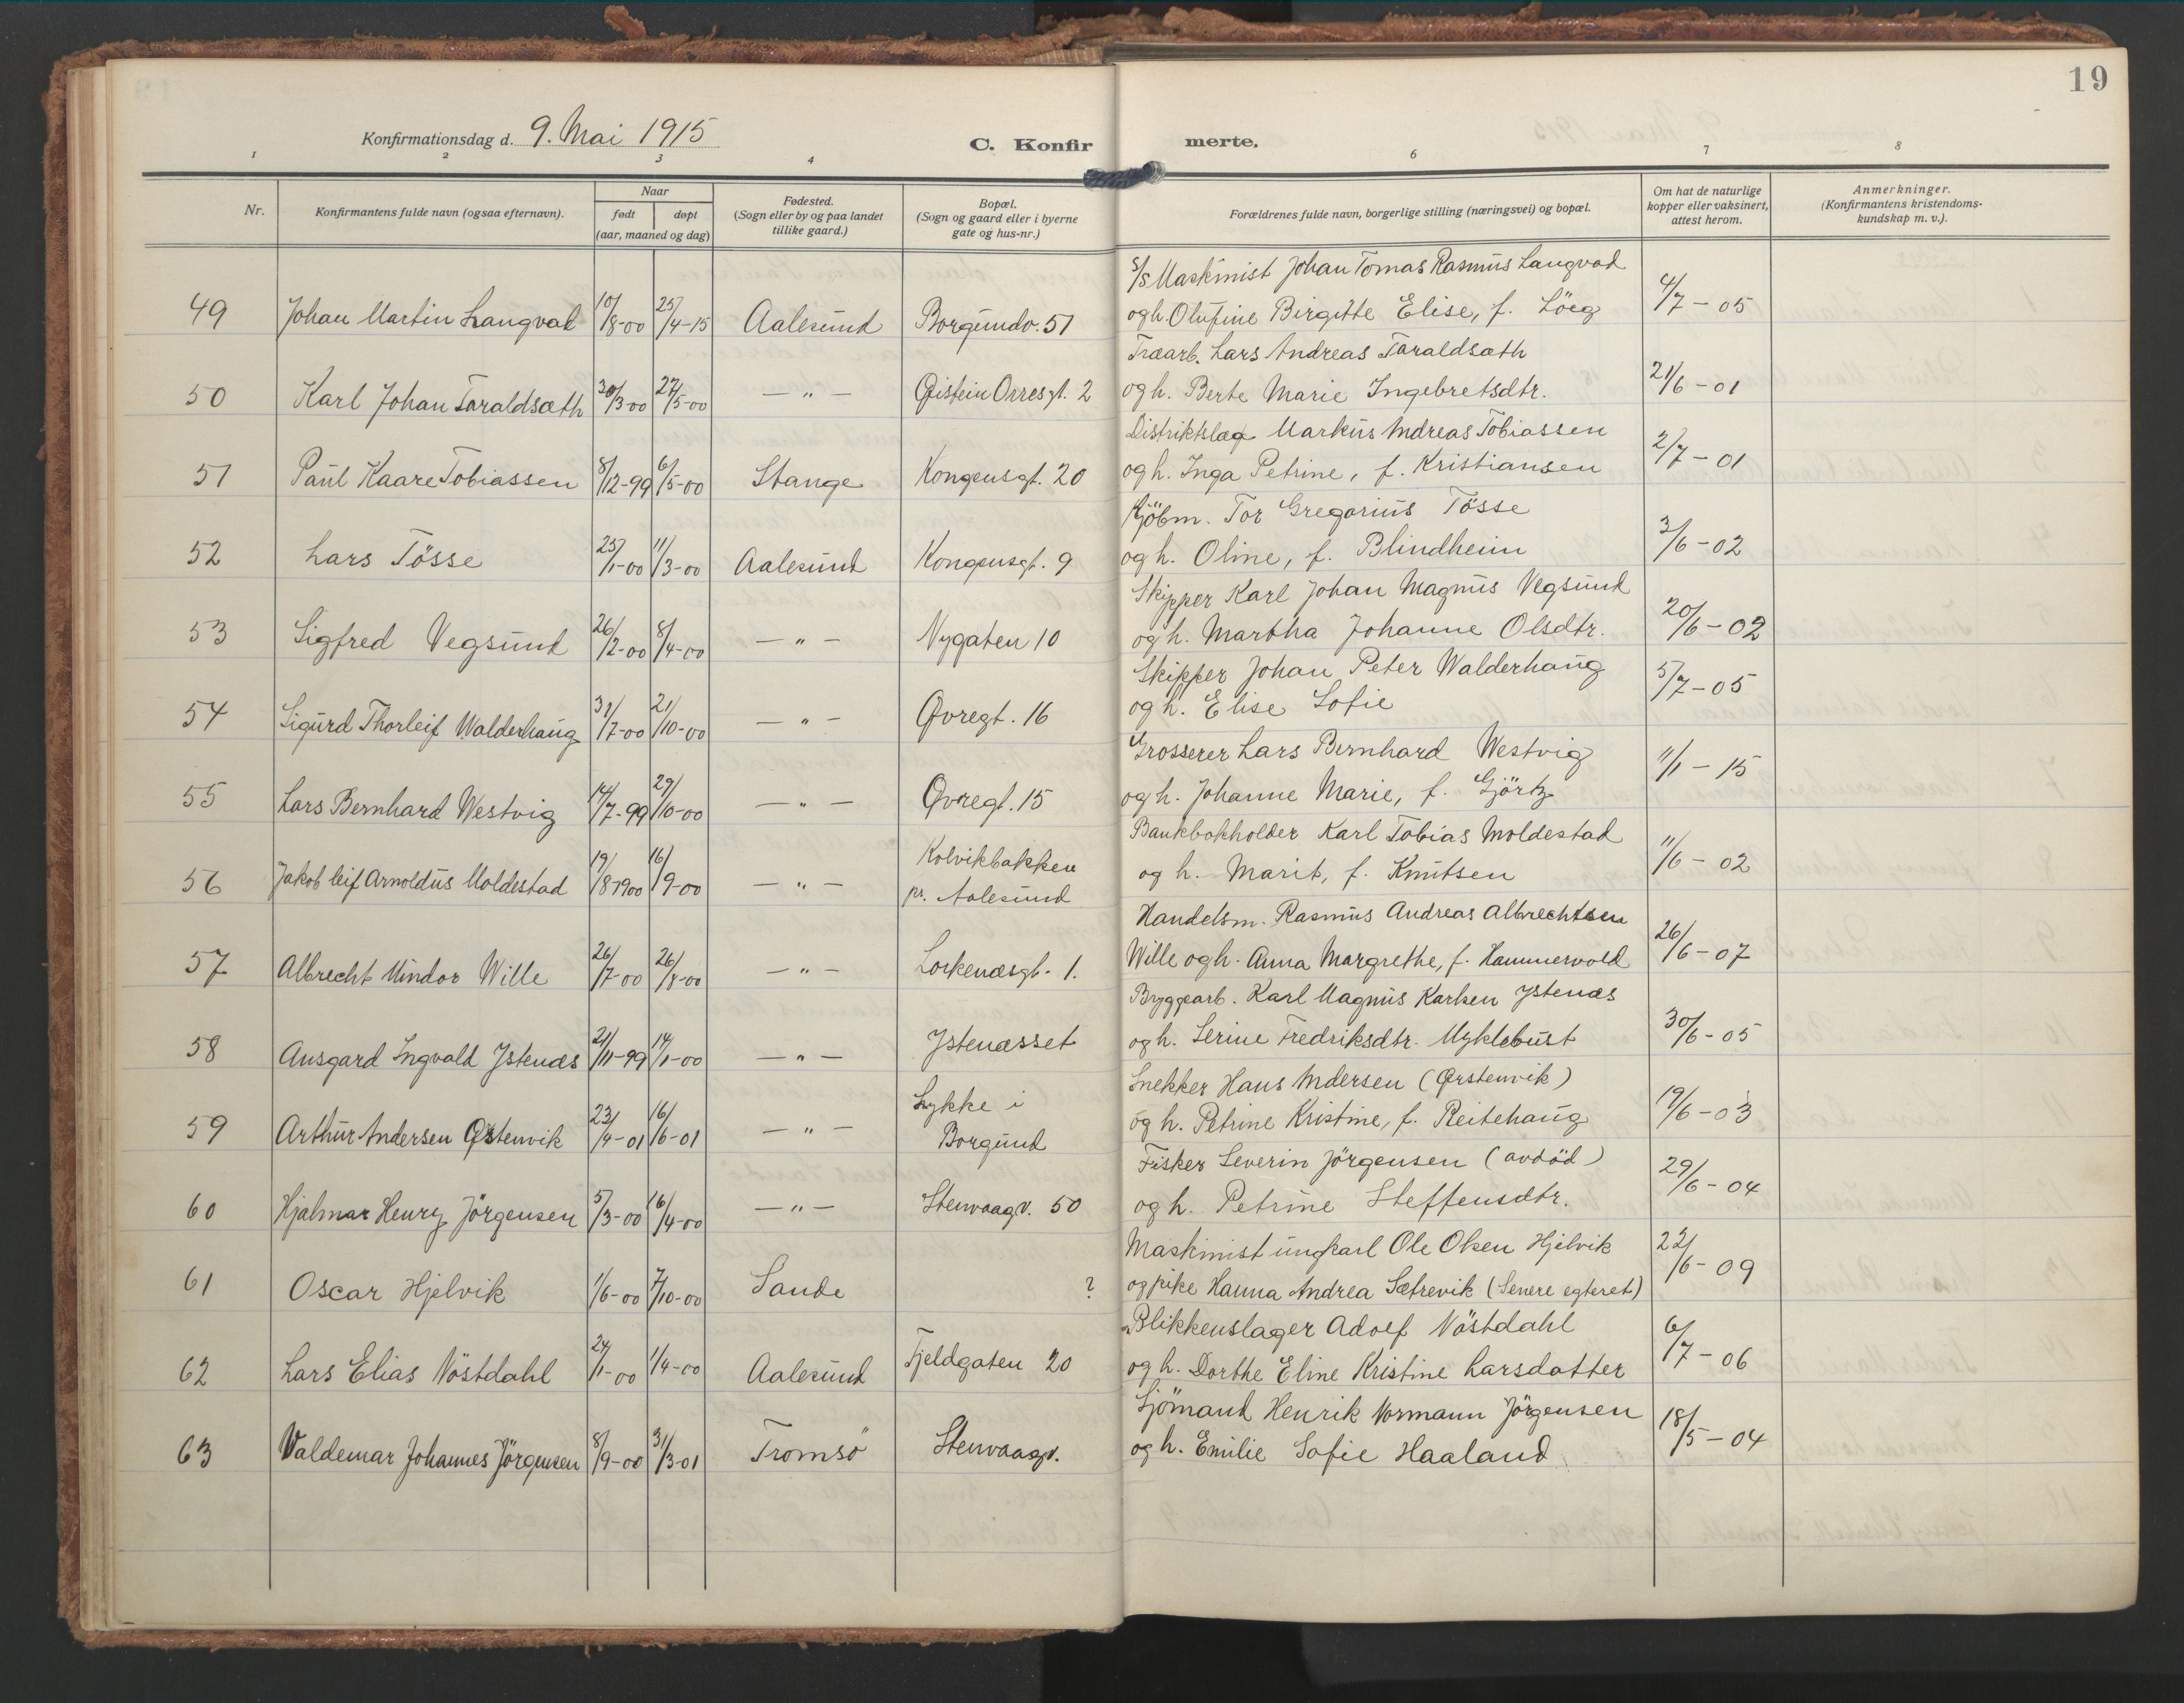 19
Konfirmationsdag d. 9. Mai 1915
C. Konfirmerte.
1 2 3 4 6 7 8
Nr.
Konfirmantens fulde navn (ogsaa efternavn).
Naar
født døpt
(aar, maaned og dag)
Fødested.
(Sogn eller by og paa landet
tillike gaard.)
Bopæl.
(Sogn og gaard eller i byerne
gate og hus-nr.)
Forældrenes fulde navn, borgerlige stilling (næringsvei) og bopæl.
Om hat de naturlige
kopper eller vaksinert,
attest herom.
Anmerkninger.
(Konfirmantens kristendoms-
kundskap m. v.).
S/S Maskinist Johan Tomas Rasmus Langvad
49 Johan Martin Langvad 10/8-00 25/4-15 Aalesund Borgundv. 51 og h. Olufine Birgitte Elise, f. Löeg 4/7-05
Træarb. Lars Andreas Taraldsæth
50 Karl Johan Taraldsæth 30/3-00 27/5-00 — " — Øistein Orresgt. 2 og h. Berte Marie Ingebretsdtr. 21/6-01
Distriktslæge Markus Andreas Tobiassen
51 Paul Kaare Tobiassen 8/12-99 6/5-00 Stange Kongensgt. 20 og h. Inga Petrine, f. Kristiansen 2/7-01
Kjöbm. Tor Gregorius Tösse
52 Lars Tösse 25/1-00 11/3-00 Aalesund Kongensgt. 9 og h. Oline, f. Blindheim 3/6-02
Skipper Karl Johan Magnus Vegsund
53 Sigfred Vegsund 26/2-00 8/4-00 — " — Nygaten 10 og h. Martha Johanne Olsdtr. 20/6-02
Skipper Johan Peter Walderhaug
54 Sigurd Thorleif Walderhaug 31/7-00 21/10-00 — " — Øvregt. 16 og h. Elise Sofie 5/7-05
Grosserer Lars Bernhard Westvig
55 Lars Bernhard Westvig 14/7-99 29/10-00 — " — Øvregt. 15 og h. Johanne Marie, f. Gjörtz 11/1-15
Kolvikbakken Bankbokholder Karl Tobias Moldestad
56 Jakob Leif Arnoldus Moldestad 19/8 1900 16/9-00 — " — pr. Aalesund og h. Marit, f. Knutsen 11/6-02
Handelsm. Rasmus Andreas Albrechtsen
57 Albrecht Mindor Wille 26/7-00 26/8-00 — " — Lorkenæsgt. 1. Wille og h. Anna Margrethe, f. Hammervold 26/6-07
Bryggearb. Karl Magnus Karlsen Ystenæs
58 Ansgard Ingvald Ystenæs 21/11-99 14/1-00 — " — Ystenæsset og h. Serine Fredriksdtr. Myklebust 30/6-05
Lykke i Snekker Hans Andersen (Ørstenvik)
59 Arthur Andersen Østenvik 23/4-01 16/6-01 — " — Borgund og h. Petrine Kristine, f. Reitehaug 19/6-03
Fisker Severin Jörgensen (avdöd)
60 Hjalmar Henry Jörgensen 5/3-00 16/4-00 — " — Stenvaagv. 50 og h. Petrine Steffensdtr. 29/6-04
Maskinist ungkarl Ole Olsen Hjelvik
61 Oscar Hjelvik 1/6-00 7/10-00 Sande ? og pike Hanna Andrea Sætrevik (Senere egteret) 22/6-09
Blikkenslager Adolf Nöstdahl
62 Lars Elias Nöstdahl 24/1-00 1/4-00 Aalesund Fjeldgaten 20 og h. Dorthe Eline Kristine Larsdatter 6/7-06
Sjömand Henrik Normann Jörgensen
63 Valdemar Johannes Jörgensen 8/9-00 31/3-01 Tromsö Stenvaagv. og h. Emilie Sofie Haaland 18/5-04